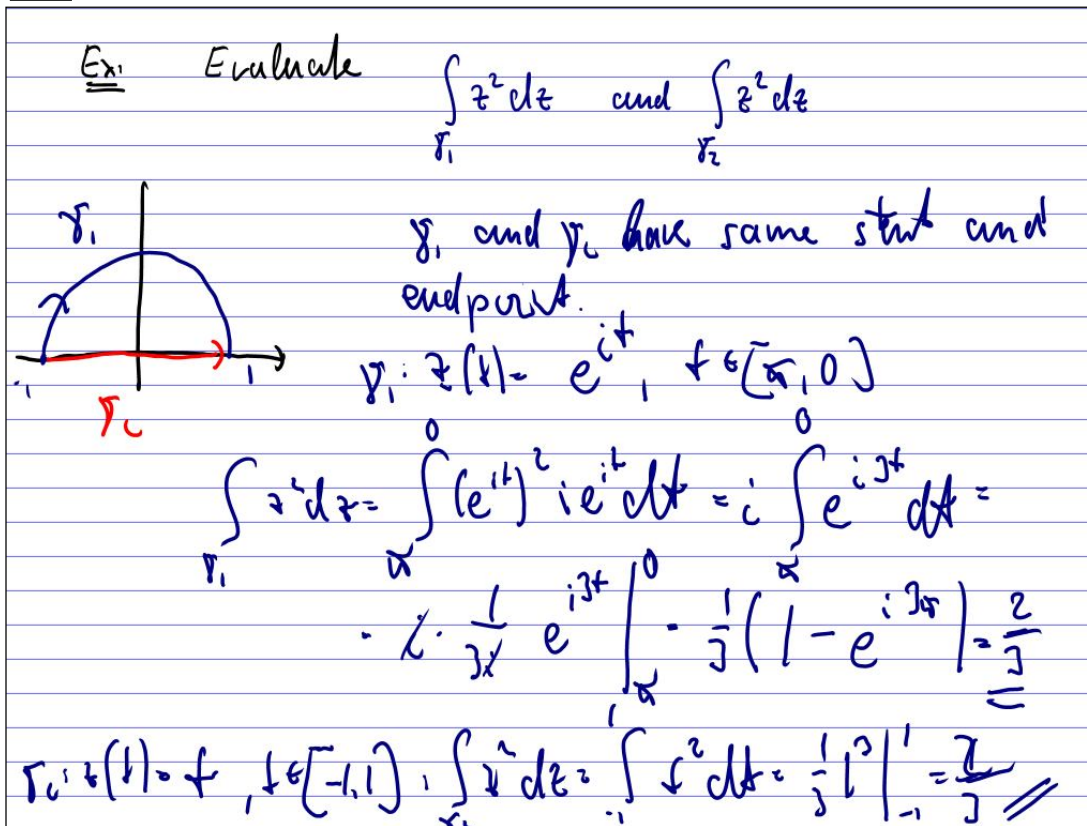 Ex: Evaluate ∫_{γ₁} z² dz and ∫_{γ₂} z² dz
γ₁ and γ₂ have same start and
endpoint.
γ₁
-1
1
γ₂
γ₁: z(t) = e^{it}, t ∈ [π, 0]
∫_{γ₁} z² dz = ∫_π^0 (e^{it})² i e^{it} dt = i ∫_π^0 e^{i3t} dt =
= i · 1/(3i) e^{i3t} |_π^0 = 1/3 (1 - e^{i3π}) = 2/3
γ₂: z(t) = t, t ∈ [-1, 1]: ∫_{γ₂} z² dz = ∫_{-1}^1 t² dt = 1/3 t³ |_{-1}^1 = 2/3 //